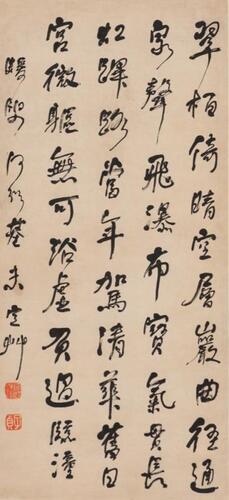 翠栢倚晴空層巖曲徑通
泉聲飛瀑布寶氣貫長
虹蹕路當年駕清華舊日
宮微軀無可浴虛負過臨潼
蝯叟何紹基未定艸